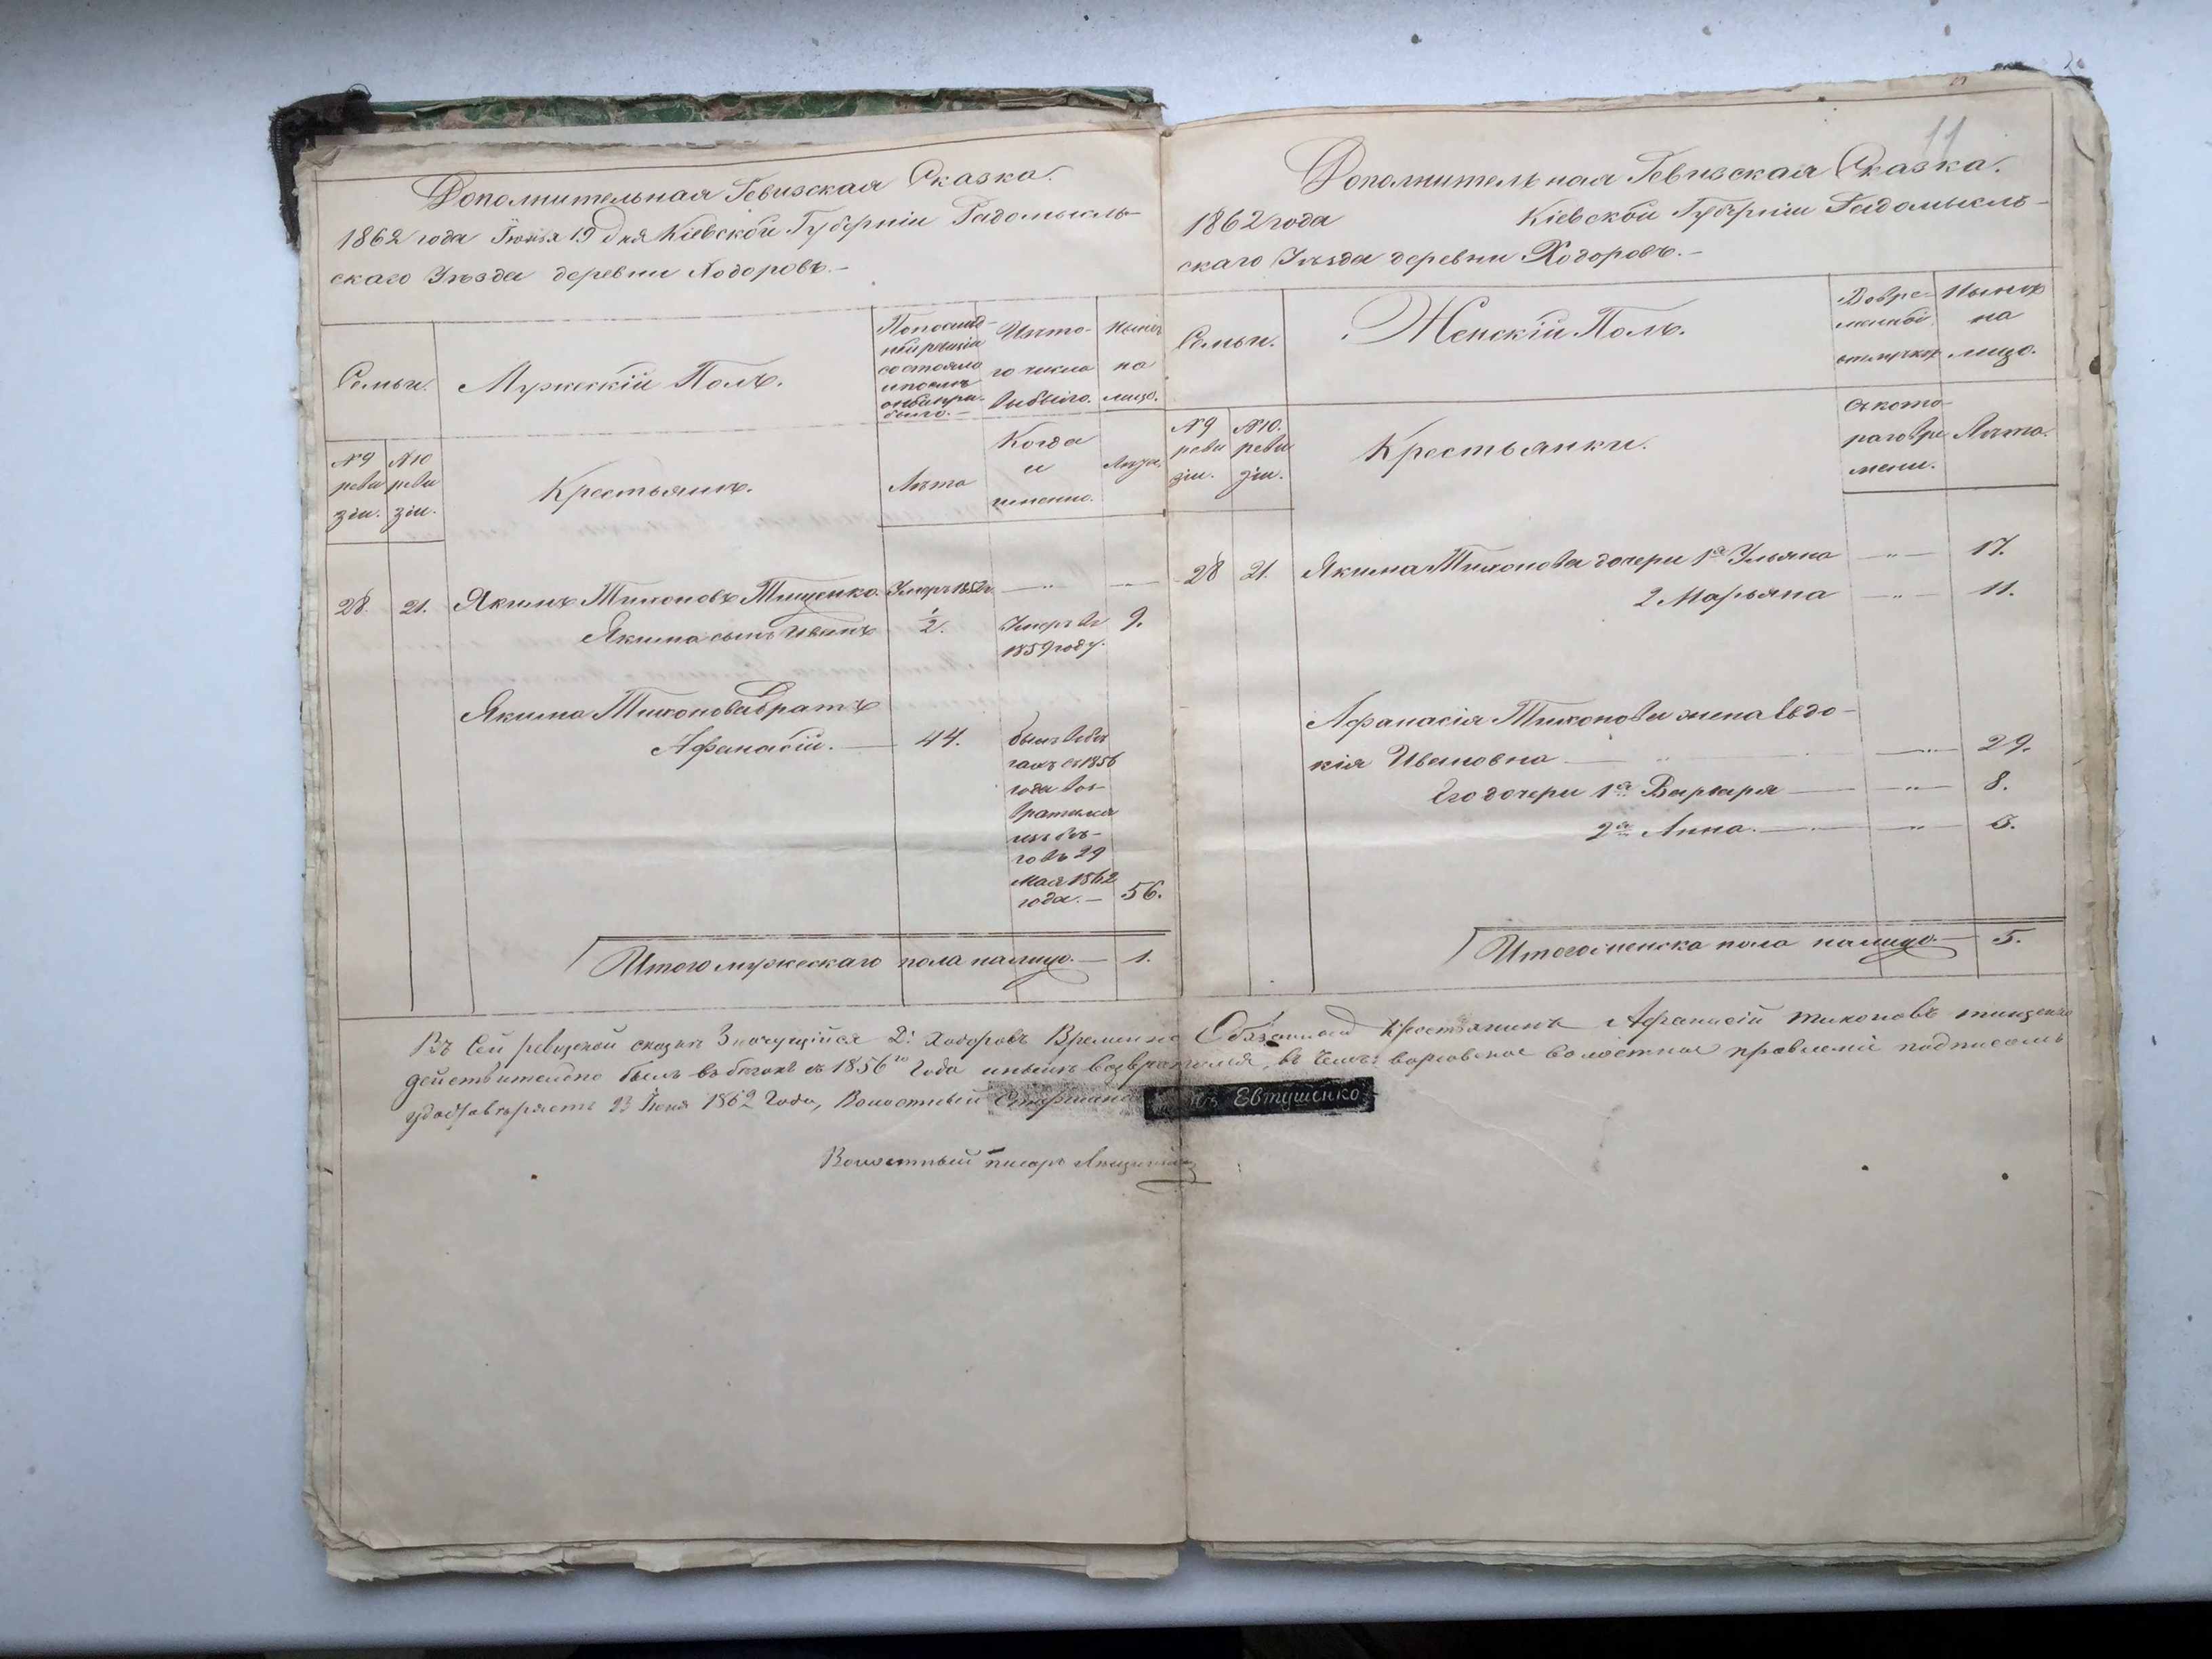 Дополнительная Ревизская Сказка.
1862 года Іюня 19 дня Кіевской Губерніи Радомысль-
скаго Уѣзда деревни Ходоровъ.-
Семьи.
Мужескій Полъ.
По послѣд-
ней ревизіи
состояло
и послѣ
оной при-
было.-
Изъ то-
го числа
выбыло.
Нынѣ
на
лицо.
№9
реви
зіи.
№10
реви
зіи.
Крестьянъ.
Лѣта
Когда
и
именно.
Лѣта.
28. 21. Якимъ Тихоновъ Тищенко. Умеръ 1852г. —"— —
Якима сынъ Иванъ ½. Умеръ въ 9.
1859 году.
Якима Тихонова братъ
Афанасій. — 44. былъ въ бѣ-
гахъ съ 1856
года воз-
вратился
изъ бѣ-
говъ 29
Мая 1862
года.— 56.
Итого мужескаго пола налицо.— 1.
11
Дополнительная Ревизская Сказка.
1862 года Кіевской Губерніи Радомысль-
скаго Уѣзда деревни Ходоровъ.-
Семьи.
Женскій Полъ.
Во вре-
менной
отлучкѣ
Нынѣ
на
лицо.
№9
реви
зіи.
№10.
реви
зіи.
Крестьянки.
Съ кото-
раго вре
мени.
Лѣта.
28 21. Якима Тихонова дочери 1я Ульяна —"— 17.
2 Марьяна —"— 11.
Афанасія Тихонова жена Евдо-
кія Ивановна — —"— 29.
Его дочери 1я Варвара — —"— 8.
2я Анна. — —"— 5.
Итого женска пола налицо.— 5.
Въ сей ревизской сказкѣ Значущійся Д: Ходоровъ Временно Обязанной Крестьянинъ Афанасій Тихоновъ Тищенко
дѣйствительно былъ въ бѣгахъ съ 1856го Года и нынѣ возвратился, въ чемъ волостное правленіе подписомъ
удостовѣряетъ 23 Іюня 1862 Года, Волостный Старшина Евтушенко
Волостный писарь